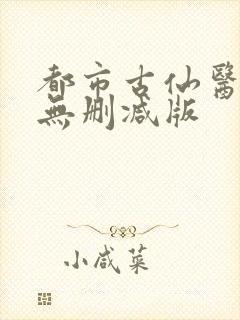 都市古仙醫
無删减版
小咸菜